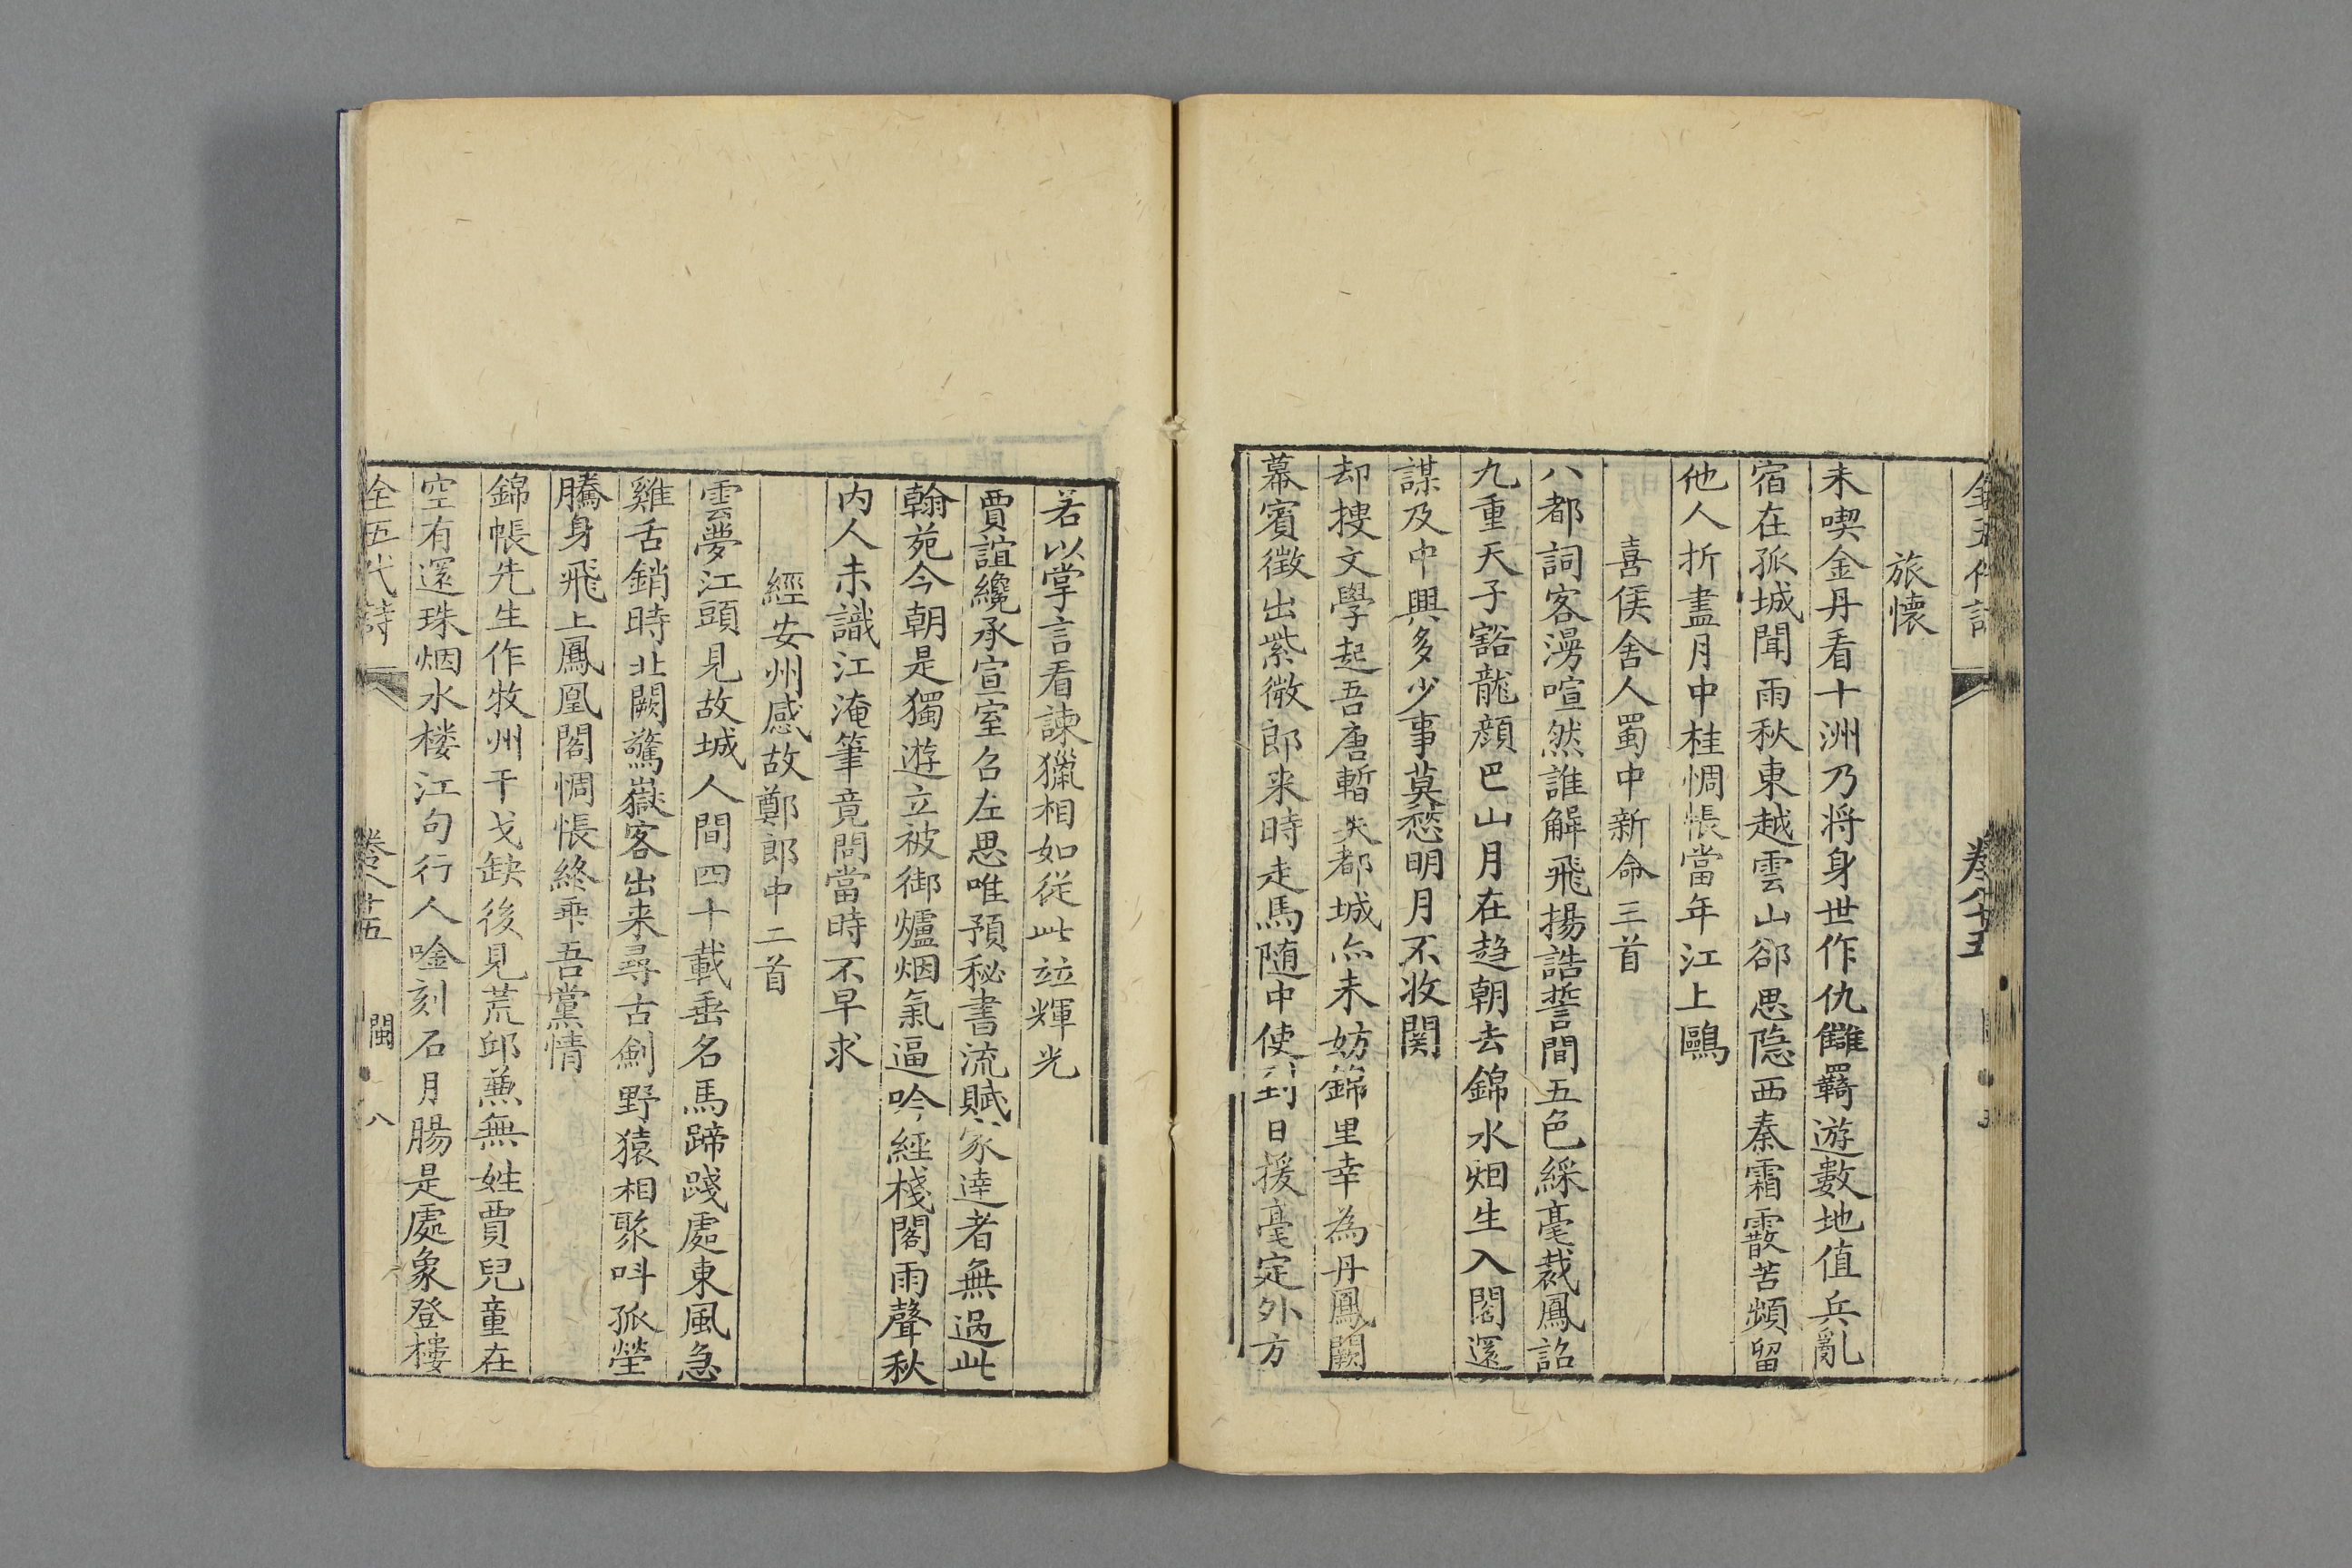 旅懷
未喫金丹看十洲乃将身世作仇讎羇遊數地值兵亂
宿在孤城聞雨秋東越雲山郤思隐西秦霜霰苦頻留
他人折盡月中桂惆悵當年江上鷗
喜侯舍人蜀中新命三首
八都詞客漫喧然誰解飛揚誥誓間五色綵毫裁鳳詔
九重天子豁龍顔巴山月在趋朝去錦水烟生入閣還
謀及中興多少事莫愁明月不收関
却搜文學起吾唐暫失都城亦未妨錦里幸為丹鳳闕
幕賓徴出紫微郎来時走馬随中使到日援毫定外方
若以掌言看諫獵相如從此竝輝光
賈誼纔承宣室召左思唯預秘書流賦家達者無過此
翰苑今朝是獨遊立被御爐烟氣逼吟經棧閣雨聲秋
内人未識江淹筆竟問當時不早求
經安州感故鄭郎中二首
雲夢江頭見故城人間四十載垂名馬蹄踐處東風急
雞舌銷時北闕驚嶽客出来尋古劍野猿相聚呌孤塋
騰身飛上鳳凰閣惆悵終乖吾黨情
錦帳先生作牧州干戈缺後見荒邱蕪無姓賈兒童在
空有還珠烟水楼江句行人唫刻石月腸是處象登樓
全五代詩
卷八十五
閩
八